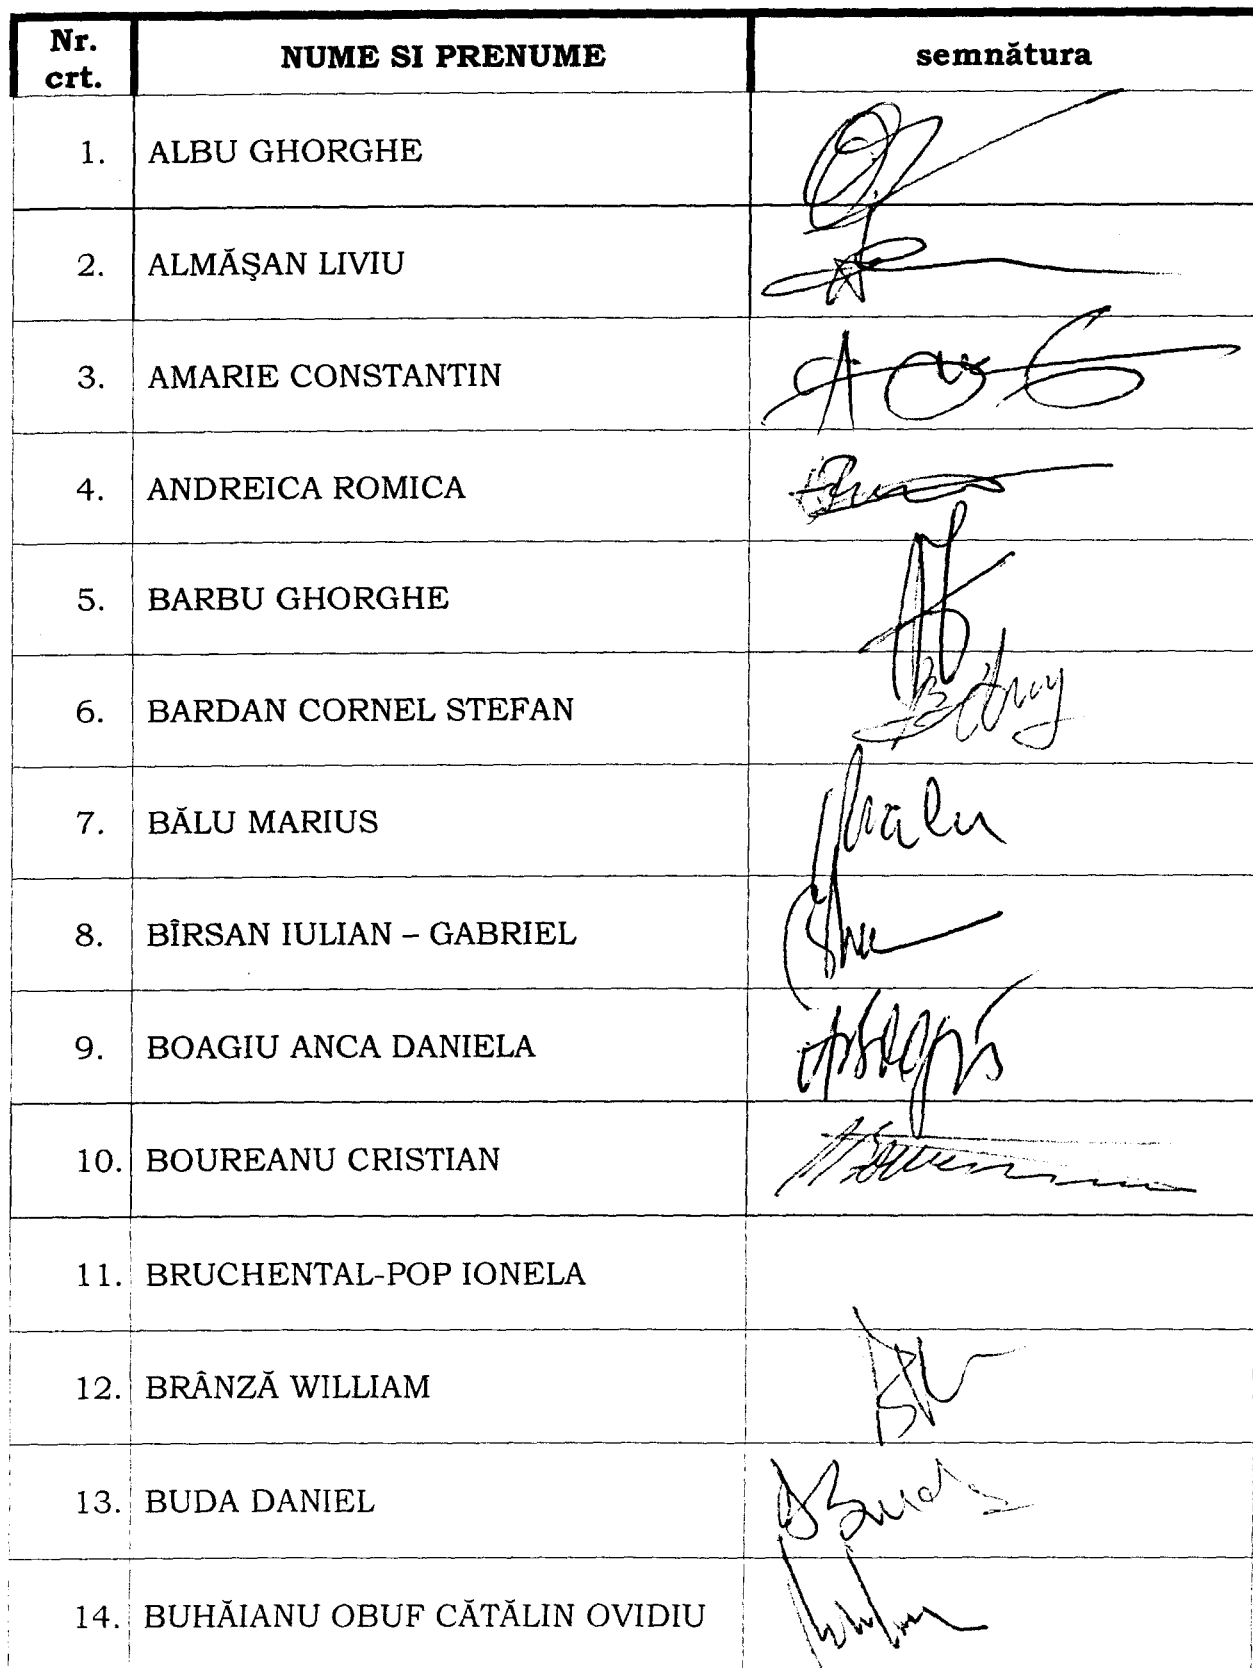 Nr. crt. NUME SI PRENUME semnătura
1. ALBU GHORGHE
2. ALMĂŞAN LIVIU
3. AMARIE CONSTANTIN
4. ANDREICA ROMICA
5. BARBU GHORGHE
6. BARDAN CORNEL STEFAN
7. BĂLU MARIUS
8. BÎRSAN IULIAN – GABRIEL
9. BOAGIU ANCA DANIELA
10. BOUREANU CRISTIAN
11. BRUCHENTAL-POP IONELA
12. BRÂNZĂ WILLIAM
13. BUDA DANIEL
14. BUHĂIANU OBUF CĂTĂLIN OVIDIU